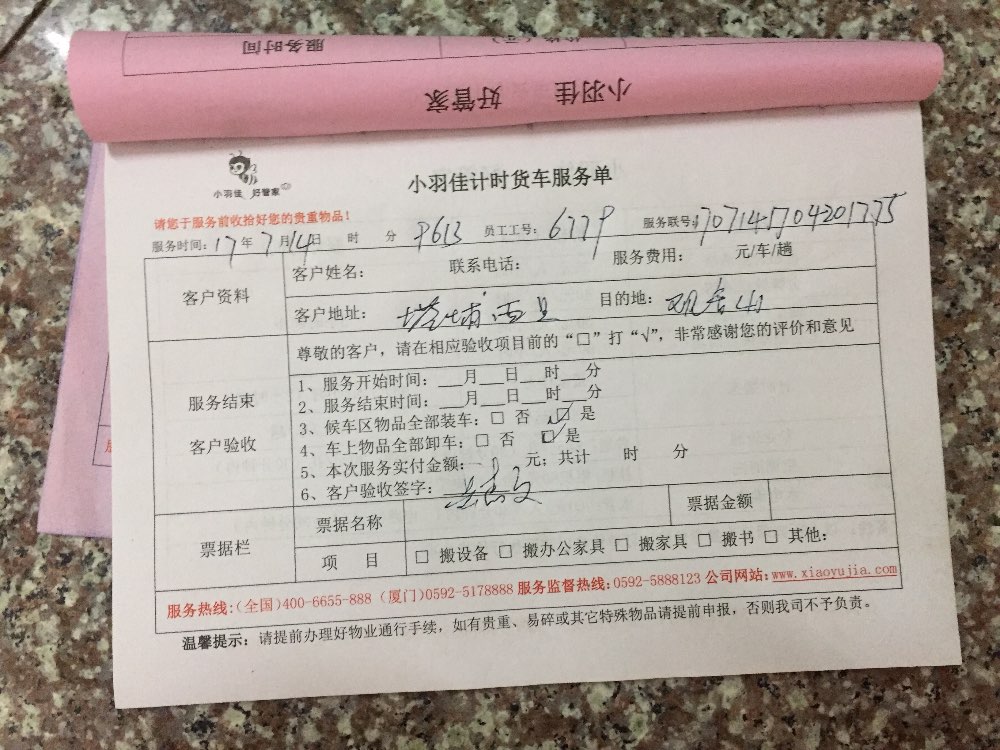 服务时间
小羽佳 好管家
小羽佳 好管家
小羽佳计时货车服务单
请您于服务前收拾好您的贵重物品！
服务时间：17年7月14日 时 分 9613 员工工号：6779 服务联号：1707141704201775
客户资料
客户姓名： 联系电话： 服务费用： 元/车/趟
客户地址：塔埔西里 目的地：观音山
服务结束
客户验收
尊敬的客户，请在相应验收项目前的“□”打“√”，非常感谢您的评价和意见
1、服务开始时间：___月___日___时___分
2、服务结束时间：___月___日___时___分
3、候车区物品全部装车：□ 否 ☑ 是
4、车上物品全部卸车：□ 否 ☑ 是
5、本次服务实付金额： 元；共计 时 分
6、客户验收签字：
票据栏
票据名称 票据金额
项 目 □ 搬设备 □ 搬办公家具 □ 搬家具 □ 搬书 □ 其他：
服务热线：(全国)400-6655-888 (厦门)0592-5178888 服务监督热线：0592-5888123 公司网站：www.xiaoyujia.com
温馨提示：请提前办理好物业通行手续，如有贵重、易碎或其它特殊物品请提前申报，否则我司不予负责。